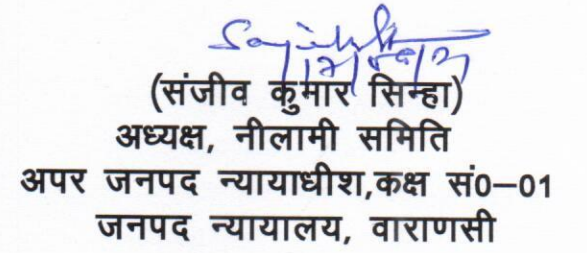 (संजीव कुमार सिन्हा)
अध्यक्ष, नीलामी समिति
अपर जनपद न्यायाधीश,कक्ष सं0–01
जनपद न्यायालय, वाराणसी